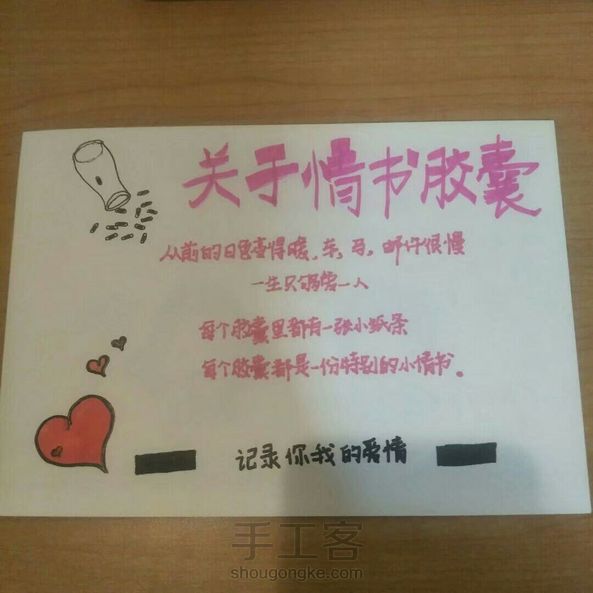 关于情书胶囊
从前的日色变得暖，车，马，邮件很慢
一生只够爱一人
每个胶囊里都有一张小纸条
每个胶囊都是一份特别的小情书。
记录你我的爱情
手工客
shougongke.com